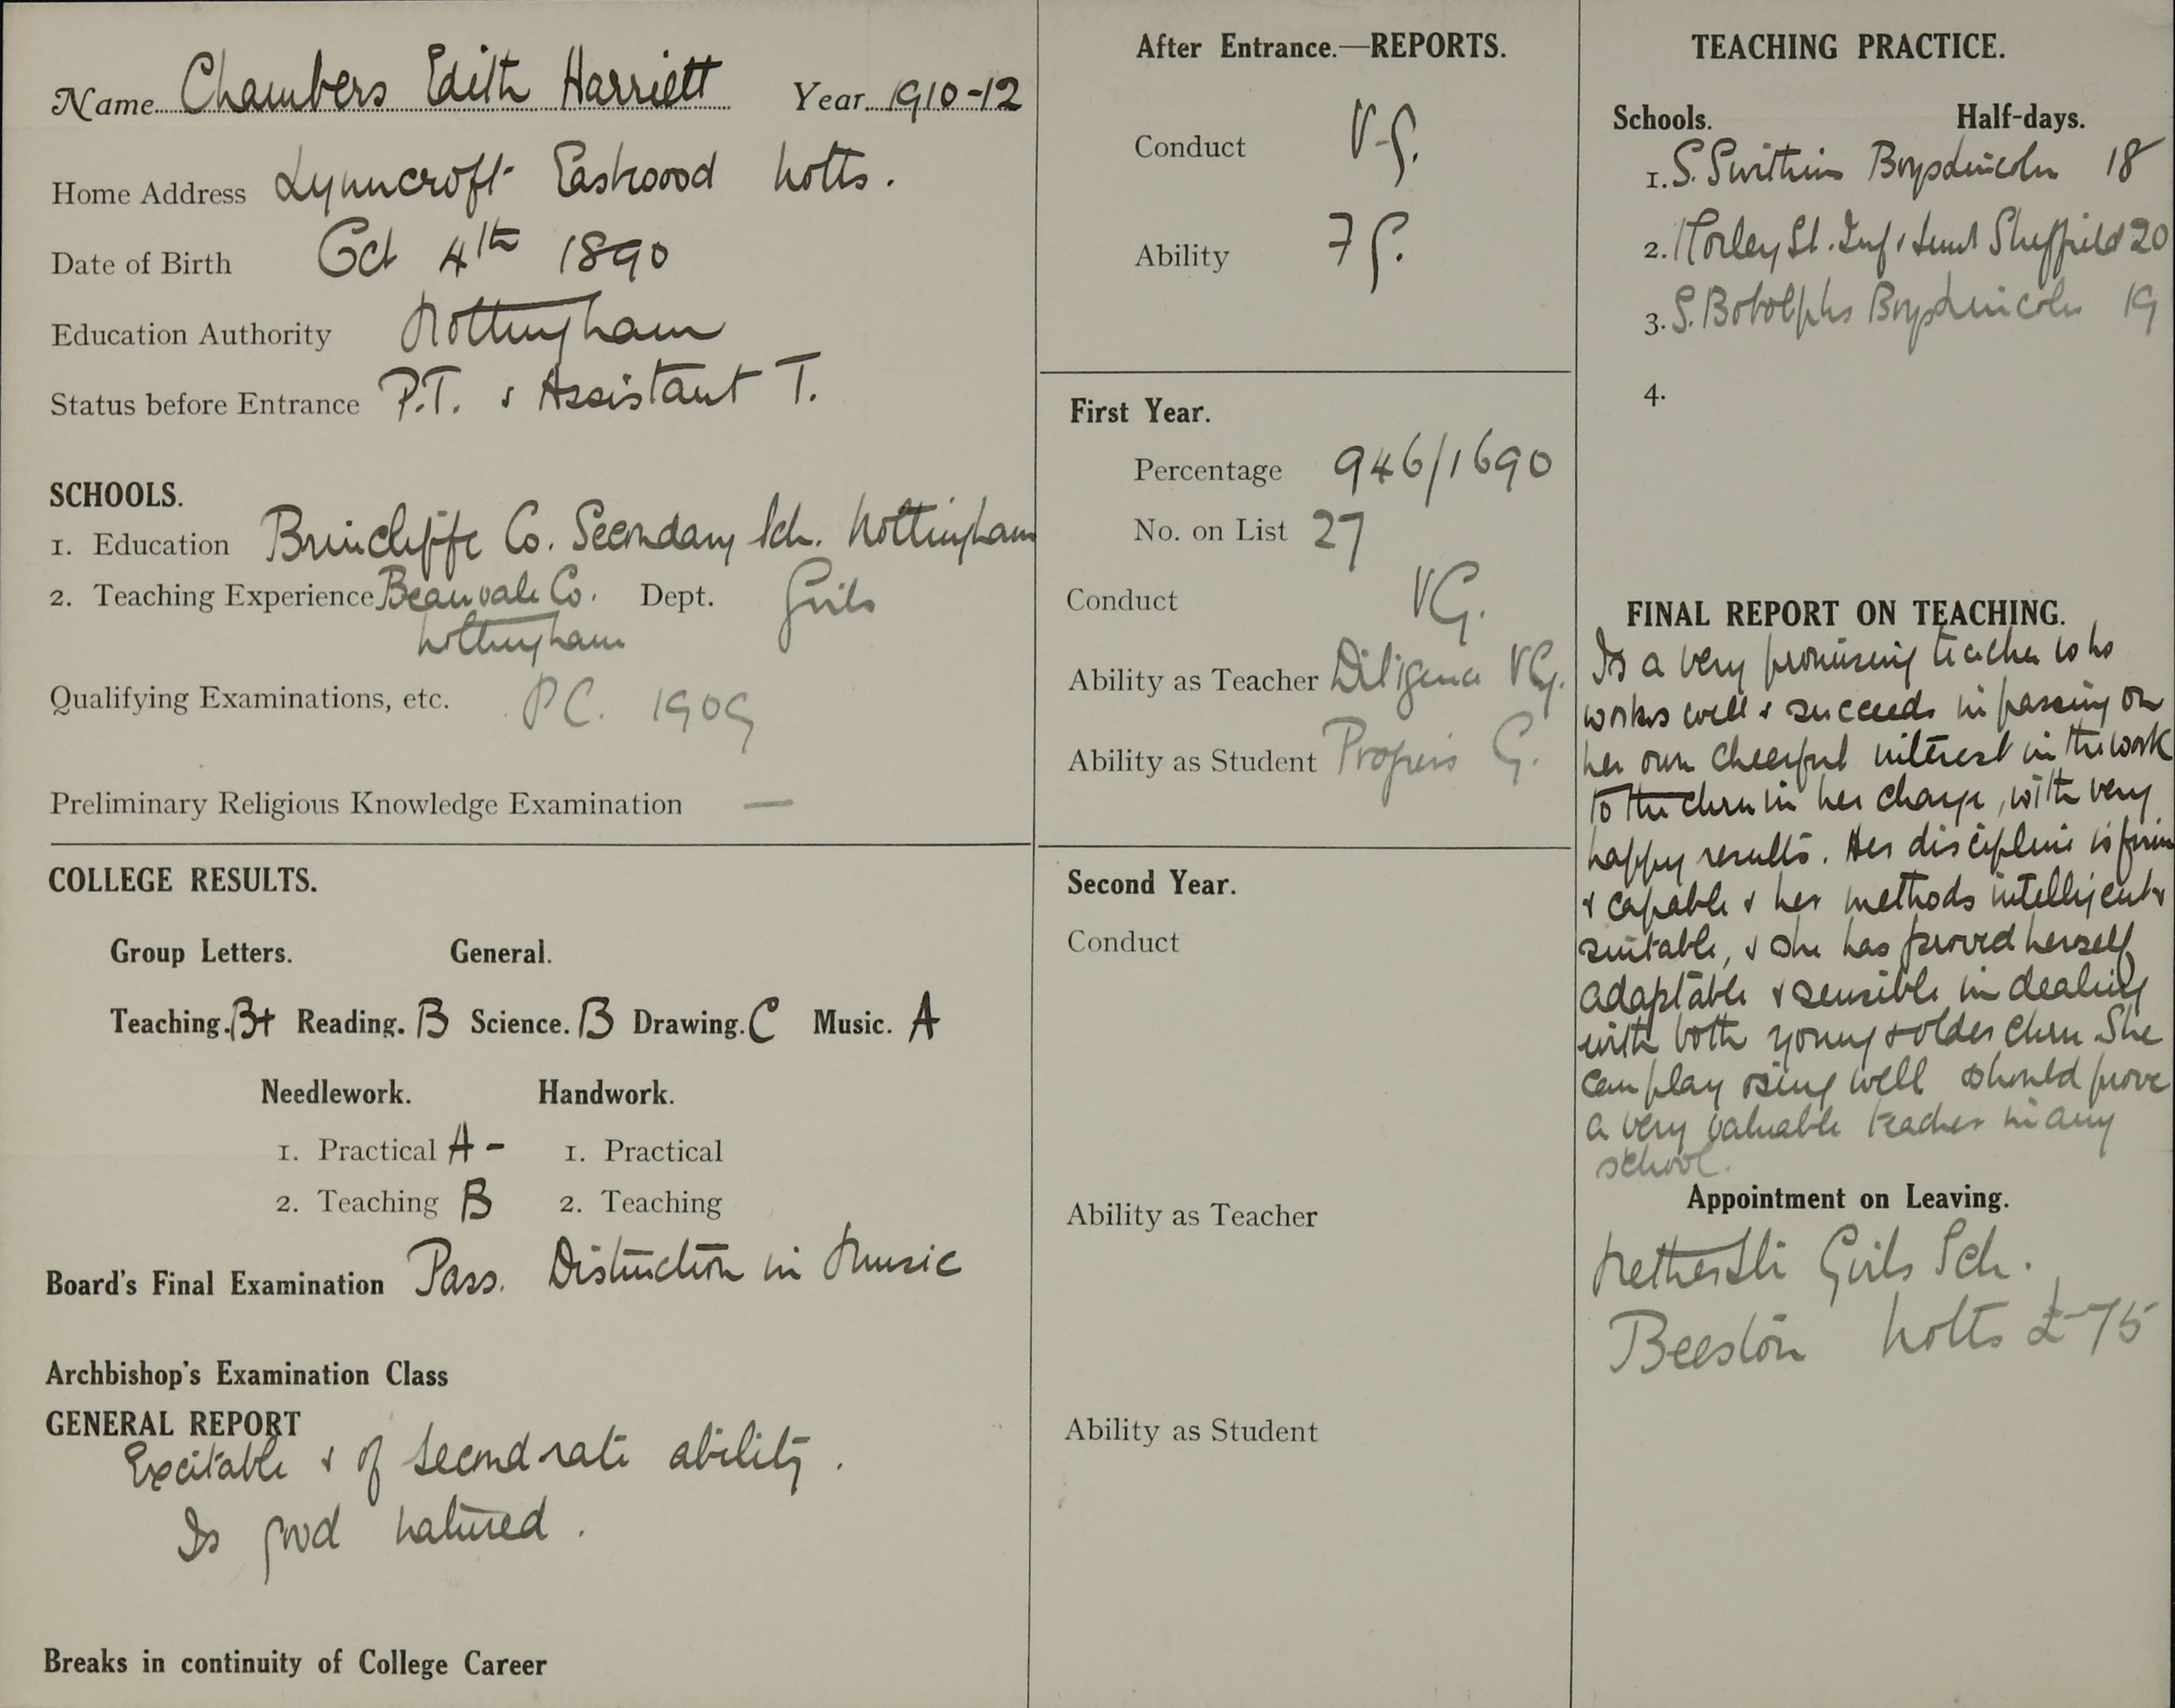 Name Chambers Edith Harriett Year 1910-12
Home Address Lynncroft Eastwood Notts.
Date of Birth Oct 4th 1890
Education Authority Nottingham
Status before Entrance P.T. & Assistant T.
SCHOOLS.
1. Education Brincliffe Co. Secondary Sch. Nottingham
2. Teaching Experience Beauvale Co. Dept. Girls
Nottingham
Qualifying Examinations, etc. P.C. 1909
Preliminary Religious Knowledge Examination —
COLLEGE RESULTS.
Group Letters. General.
Teaching. B+ Reading. B Science. B Drawing. C Music. A
Needlework. Handwork.
1. Practical A - 1. Practical
2. Teaching B 2. Teaching
Board's Final Examination Pass. Distinction in Music
Archbishop's Examination Class
GENERAL REPORT
Excitable & of second rate ability.
Is good natured.
Breaks in continuity of College Career
After Entrance.—REPORTS.
Conduct V.G.
Ability F G.
First Year.
Percentage 946/1690
No. on List 27
Conduct VG.
Ability as Teacher Diligence VG.
Ability as Student Progress G.
Second Year.
Conduct
Ability as Teacher
Ability as Student
TEACHING PRACTICE.
Schools. Half-days.
1. S. Swithins Boys Lincoln 18
2. St. Inf. Sheffield 20
3. S. Botolphs Boys Lincoln 19
4.
FINAL REPORT ON TEACHING.
Is a very promising teacher who
works well & succeeds in passing on
her own cheerful interest in the work
to the chrn in her charge, with very
happy results. Her discipline is firm
& capable & her methods intelligent &
suitable, & she has proved herself
adaptable & sensible in dealing
with both young & older chrn She
can play & sing well should prove
a very valuable teacher in any
school.
Appointment on Leaving.
Girls Sch.
Beeston Notts £75